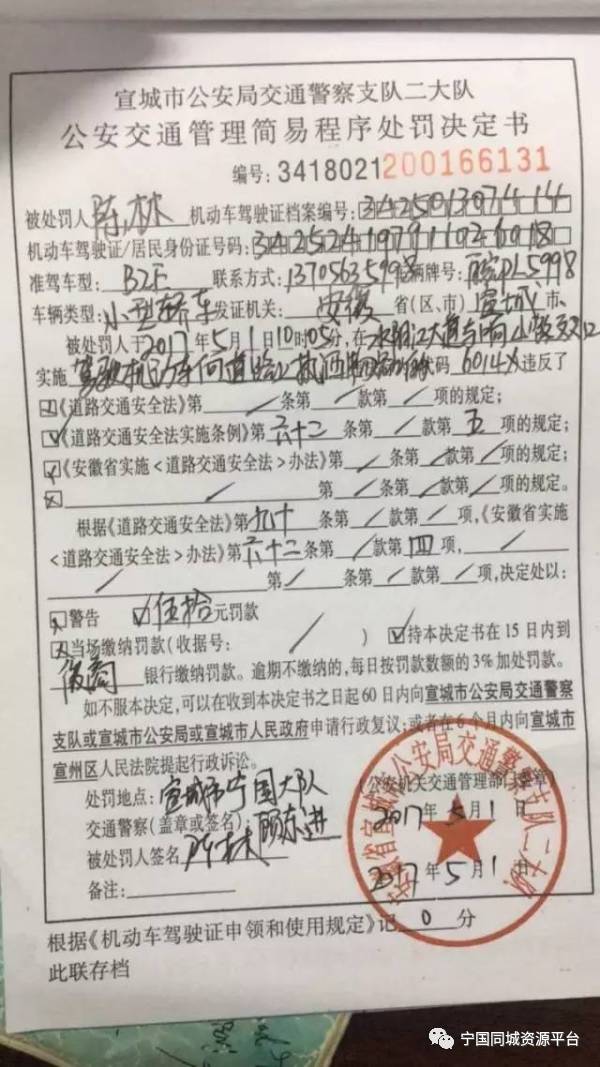 宣城市公安局交通警察支队二大队
公安交通管理简易程序处罚决定书
编号:3418021200166131
被处罚人 陈林 机动车驾驶证档案编号:
机动车驾驶证/居民身份证号码:
准驾车型: B2E 联系方式: 牌号: 皖PL5998
车辆类型: 小型轿车 发证机关: 安徽 省(区、市) 宣城 市、
被处罚人于2017年5月1日10时05分,在
实施 驾驶机动车向道路上抛洒物品 代码 6014X 违反了
☒《道路交通安全法》第 / 条第 / 款第 / 项的规定;
☑《道路交通安全法实施条例》第 六十二 条第 / 款第 五 项的规定;
《安徽省实施<道路交通安全法>办法》第 / 条第 / 款第 / 项的规定;
☒ / 第 / 条第 / 款第 / 项的规定。
根据《道路交通安全法》第 九十 条第 / 款第 / 项,《安徽省实施
<道路交通安全法>办法》第 六十二 条第 / 款第 四 项,
/ 第 / 条第 / 款第 / 项,决定处以:
☒警告 ☑ 伍拾 元罚款
☒当场缴纳罚款(收据号: / ) ☑持本决定书在15日内到
银行缴纳罚款。逾期不缴纳的,每日按罚款数额的3%加处罚款。
如不服本决定,可以在收到本决定书之日起60日内向宣城市公安局交通警察
支队或宣城市公安局或宣城市人民政府申请行政复议;或者在6个月内向宣城市
宣州区人民法院提起行政诉讼。
处罚地点: 宣城市宁国大队
(公安机关交通管理部门盖章)
交通警察(盖章或签名): 顾东进
2017年5月1日
被处罚人签名 陈林
2017年5月1日
备注:
安徽省宣城市公安局交通警察支队二大队
根据《机动车驾驶证申领和使用规定》记 0 分
此联存档
宁国同城资源平台